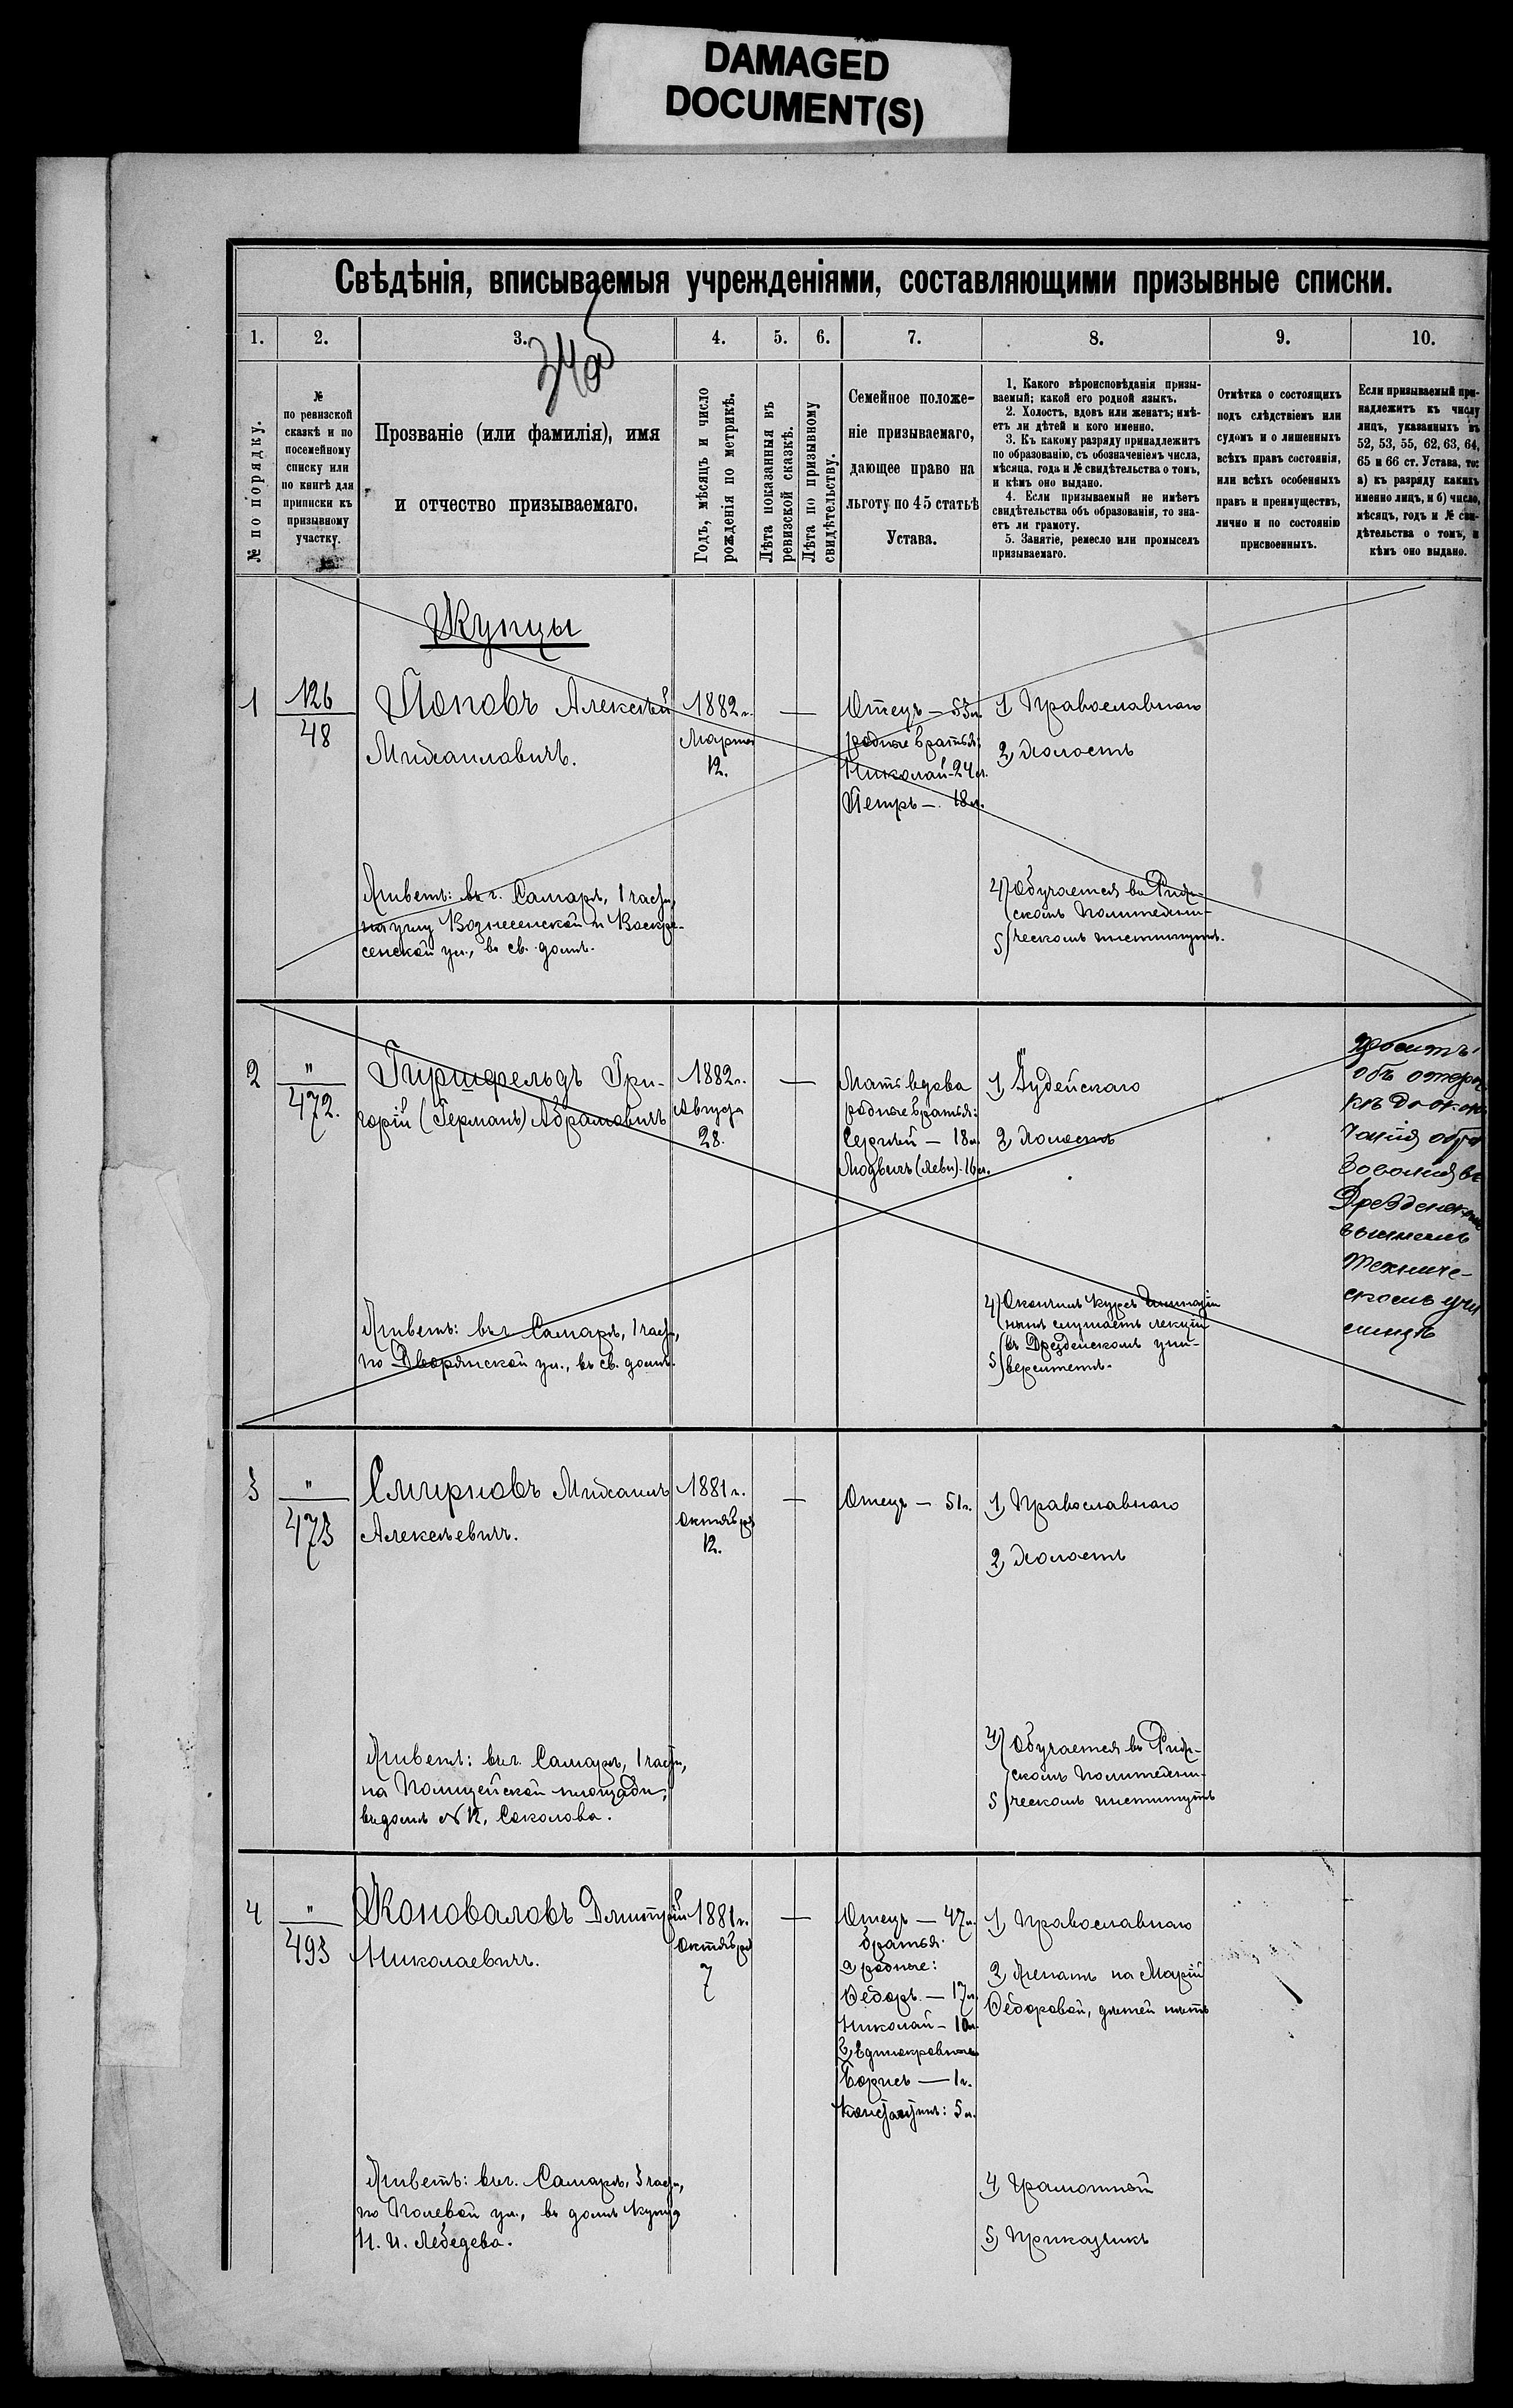 DAMAGED
DOCUMENT(S)
Свѣдѣнія, вписываемыя учрежденіями, составляющими призывные списки.
1.
2.
3.
4.
5.
6.
7.
8.
9.
10.
№ по порядку.
№
по ревизской
сказкѣ и по
посемейному
списку или
по книгѣ для
приписки къ
призывному
участку.
Прозваніе (или фамилія), имя
и отчество призываемаго.
Годъ, мѣсяцъ и число
рожденія по метрикѣ.
Лѣта показанныя въ
ревизской сказкѣ.
Лѣта по призывному
свидѣтельству.
Семейное положе-
ніе призываемаго,
дающее право на
льготу по 45 статьѣ
Устава.
1. Какого вѣроисповѣданія призы-
ваемый; какой его родной языкъ.
2. Холостъ, вдовъ или женатъ; имѣ-
етъ ли дѣтей и кого именно.
3. Къ какому разряду принадлежитъ
по образованію, съ обозначеніемъ числа,
мѣсяца, года и № свидѣтельства о томъ,
и кѣмъ оно выдано.
4. Если призываемый не имѣетъ
свидѣтельства объ образованіи, то зна-
етъ ли грамоту.
5. Занятіе, ремесло или промыселъ
призываемаго.
Отмѣтка о состоящихъ
подъ слѣдствіемъ или
судомъ и о лишенныхъ
всѣхъ правъ состоянія,
или всѣхъ особенныхъ
правъ и преимуществъ,
лично и по состоянію
присвоенныхъ.
Если призываемый при-
надлежитъ къ числу
лицъ, указанныхъ въ
52, 53, 55, 62, 63, 64,
65 и 66 ст. Устава, то:
а) къ разряду какихъ
именно лицъ, и б) число,
мѣсяцъ, годъ и № сви-
дѣтельства о томъ, и
кѣмъ оно выдано.
Купцы
1
126
48
Поповъ Алексѣй
Михаиловичъ.
1882 г.
Марта
12.
—
Отецъ — 53 л.
родные братья:
Николай - 24 л.
Петръ — 18 л.
1) Православнаго
2) Холостъ
Живетъ: въ г. Самарѣ, 1 части,
на углу Вознесенской и Воскре-
сенской ул., въ св. домѣ.
4) Обучается въ Риж-
скомъ Политехни-
5) ческомъ институтѣ.
2
"
472.
Гиршфельдъ Гри-
горій (Германъ) Абрамовичъ
1882 г.
Августа
28.
—
Мать вдова
родные братья:
Сергѣй — 18 л.
Людвигъ (Леви) - 16 л.
1) Іудейскаго
2) Холостъ
объ отсро
къ до окон
чанія обра
зованія въ
Дрезденском
высшемъ
техниче-
скомъ учи
лищѣ
Живетъ: въ г. Самарѣ, 1 части,
по Дворянской ул., въ св. домѣ.
4) Окончилъ курсъ Гимназіи
нынѣ слушаетъ лекціи
въ Дрезденскомъ уни-
5) верситетѣ.
3
"
473
Смирновъ Михаилъ
Алексѣевичъ.
1881 г.
Октября
12.
—
Отецъ — 51 г.
1) Православнаго
2) Холостъ
Живетъ: въ г. Самарѣ, 1 части,
на Полицейской площади,
въ домѣ N 12, Соколова.
4) Обучается въ Риж-
скомъ Политехни-
5) ческомъ институтѣ
4
"
493
Коноваловъ Дмитрій
Николаевичъ.
1881 г.
Октября
7
—
Отецъ — 47 л.
братья
а) родные:
Ѳедоръ — 17 л.
Николай — 10 л.
б) Единокровные
Борисъ — 1 г.
Константинъ: 5 л.
1) Православнаго
2) Женатъ на Маріи
Ѳедоровой, дѣтей нѣтъ
Живетъ: въ г. Самарѣ, 3 части,
по Полевой ул., въ домѣ купца
Н. И. Лебедева.
4) Грамотной
5) Приказчикъ